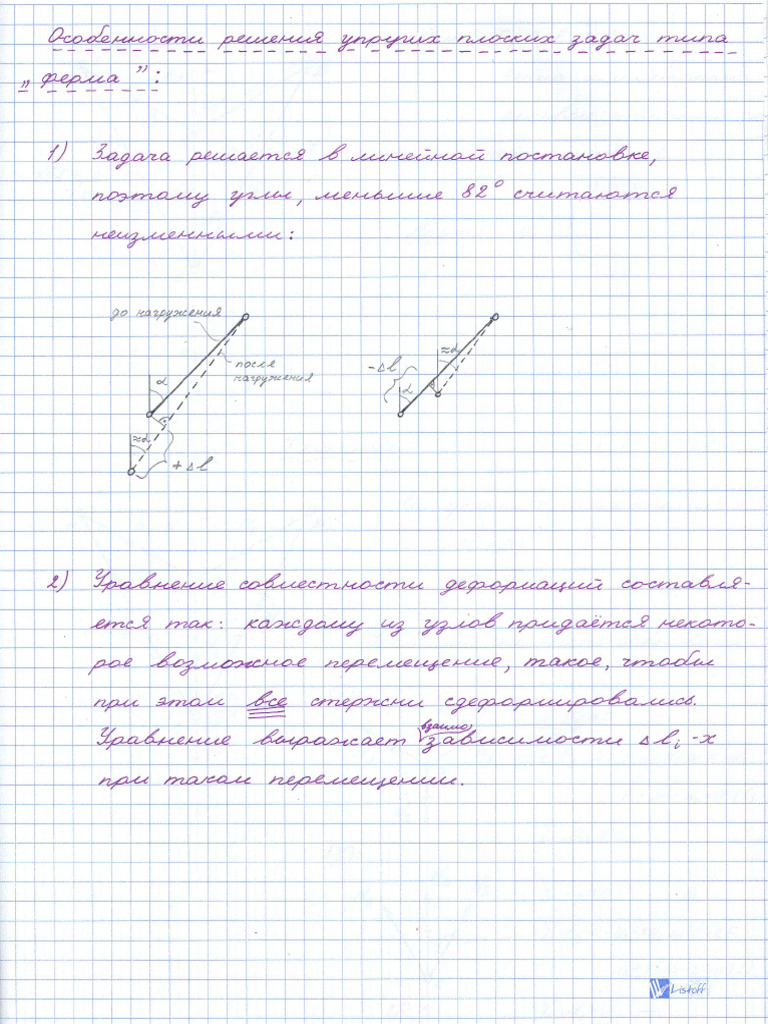 Особенности решения упругих плоских задач типа
„ферма”:
1) Задача решается в линейной постановке,
поэтому углы, меньшие 82° считаются
неизменными:
до нагружения
после
нагружения
α
≈α
+Δl
-Δl
≈α
α
2) Уравнение совместности деформаций составля-
ется так: каждому из узлов придаётся некото-
рое возможное перемещение, такое, чтобы
при этом все стержни сдеформировались.
взаимо
Уравнение выражает зависимости Δlᵢ-х
при таком перемещении.
Listoff